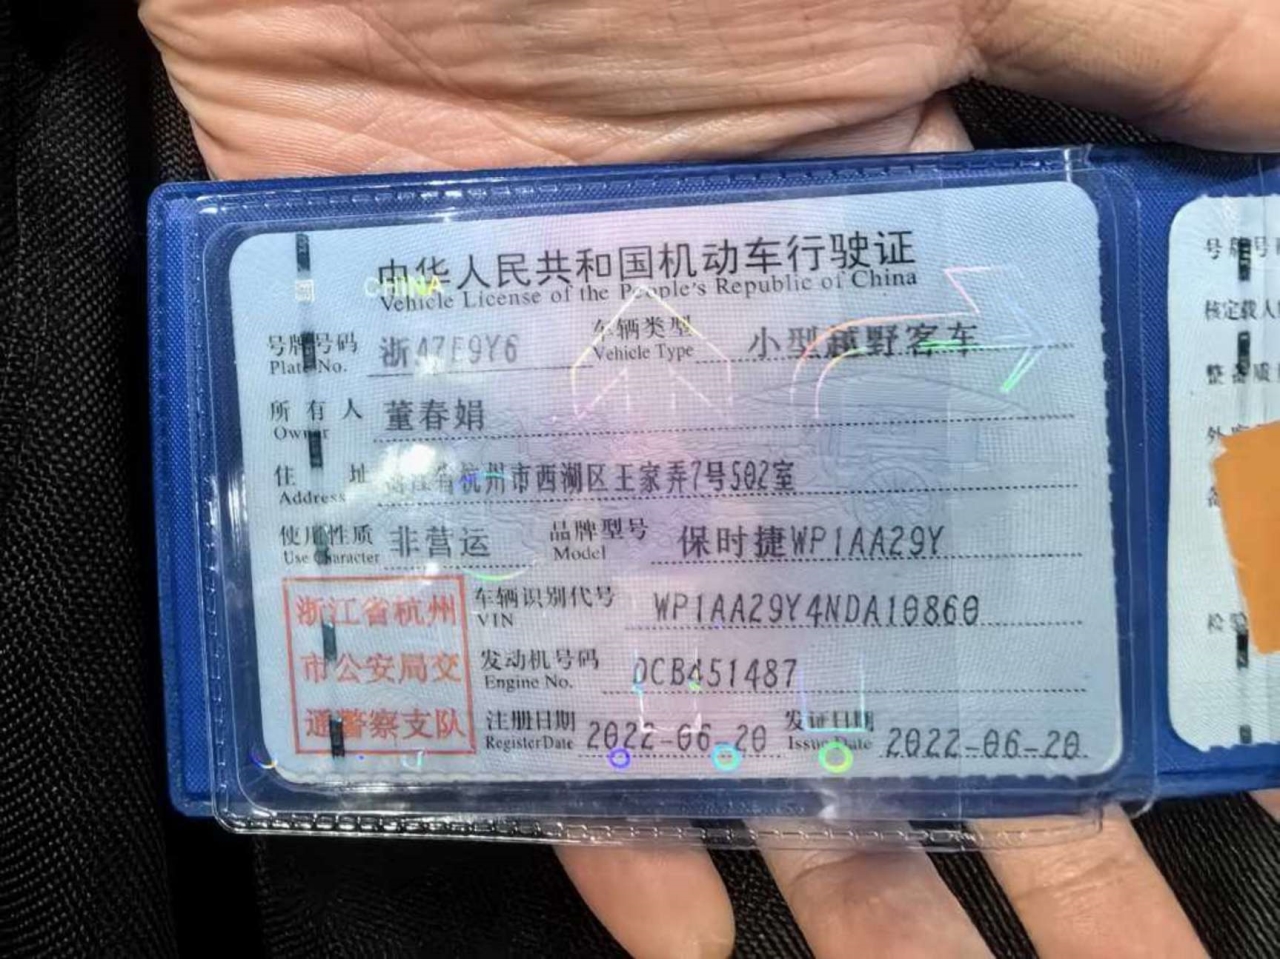 中华人民共和国机动车行驶证
CHINA
Vehicle License of the People's Republic of China
号牌号码 浙A7E9Y6 车辆类型 小型越野客车
Plate No. Vehicle Type
所有人 董春娟
Owner
住址 浙江省杭州市西湖区王家弄7号502室
Address
使用性质 非营运 品牌型号 保时捷WP1AA29Y
Use Character Model
浙江省杭州
市公安局交
通警察支队
车辆识别代号 WP1AA29Y4NDA10860
VIN
发动机号码 DCB451487
Engine No.
注册日期 2022-06-20 发证日期 2022-06-20
Register Date Issue Date
号牌号
核定载人
整备质